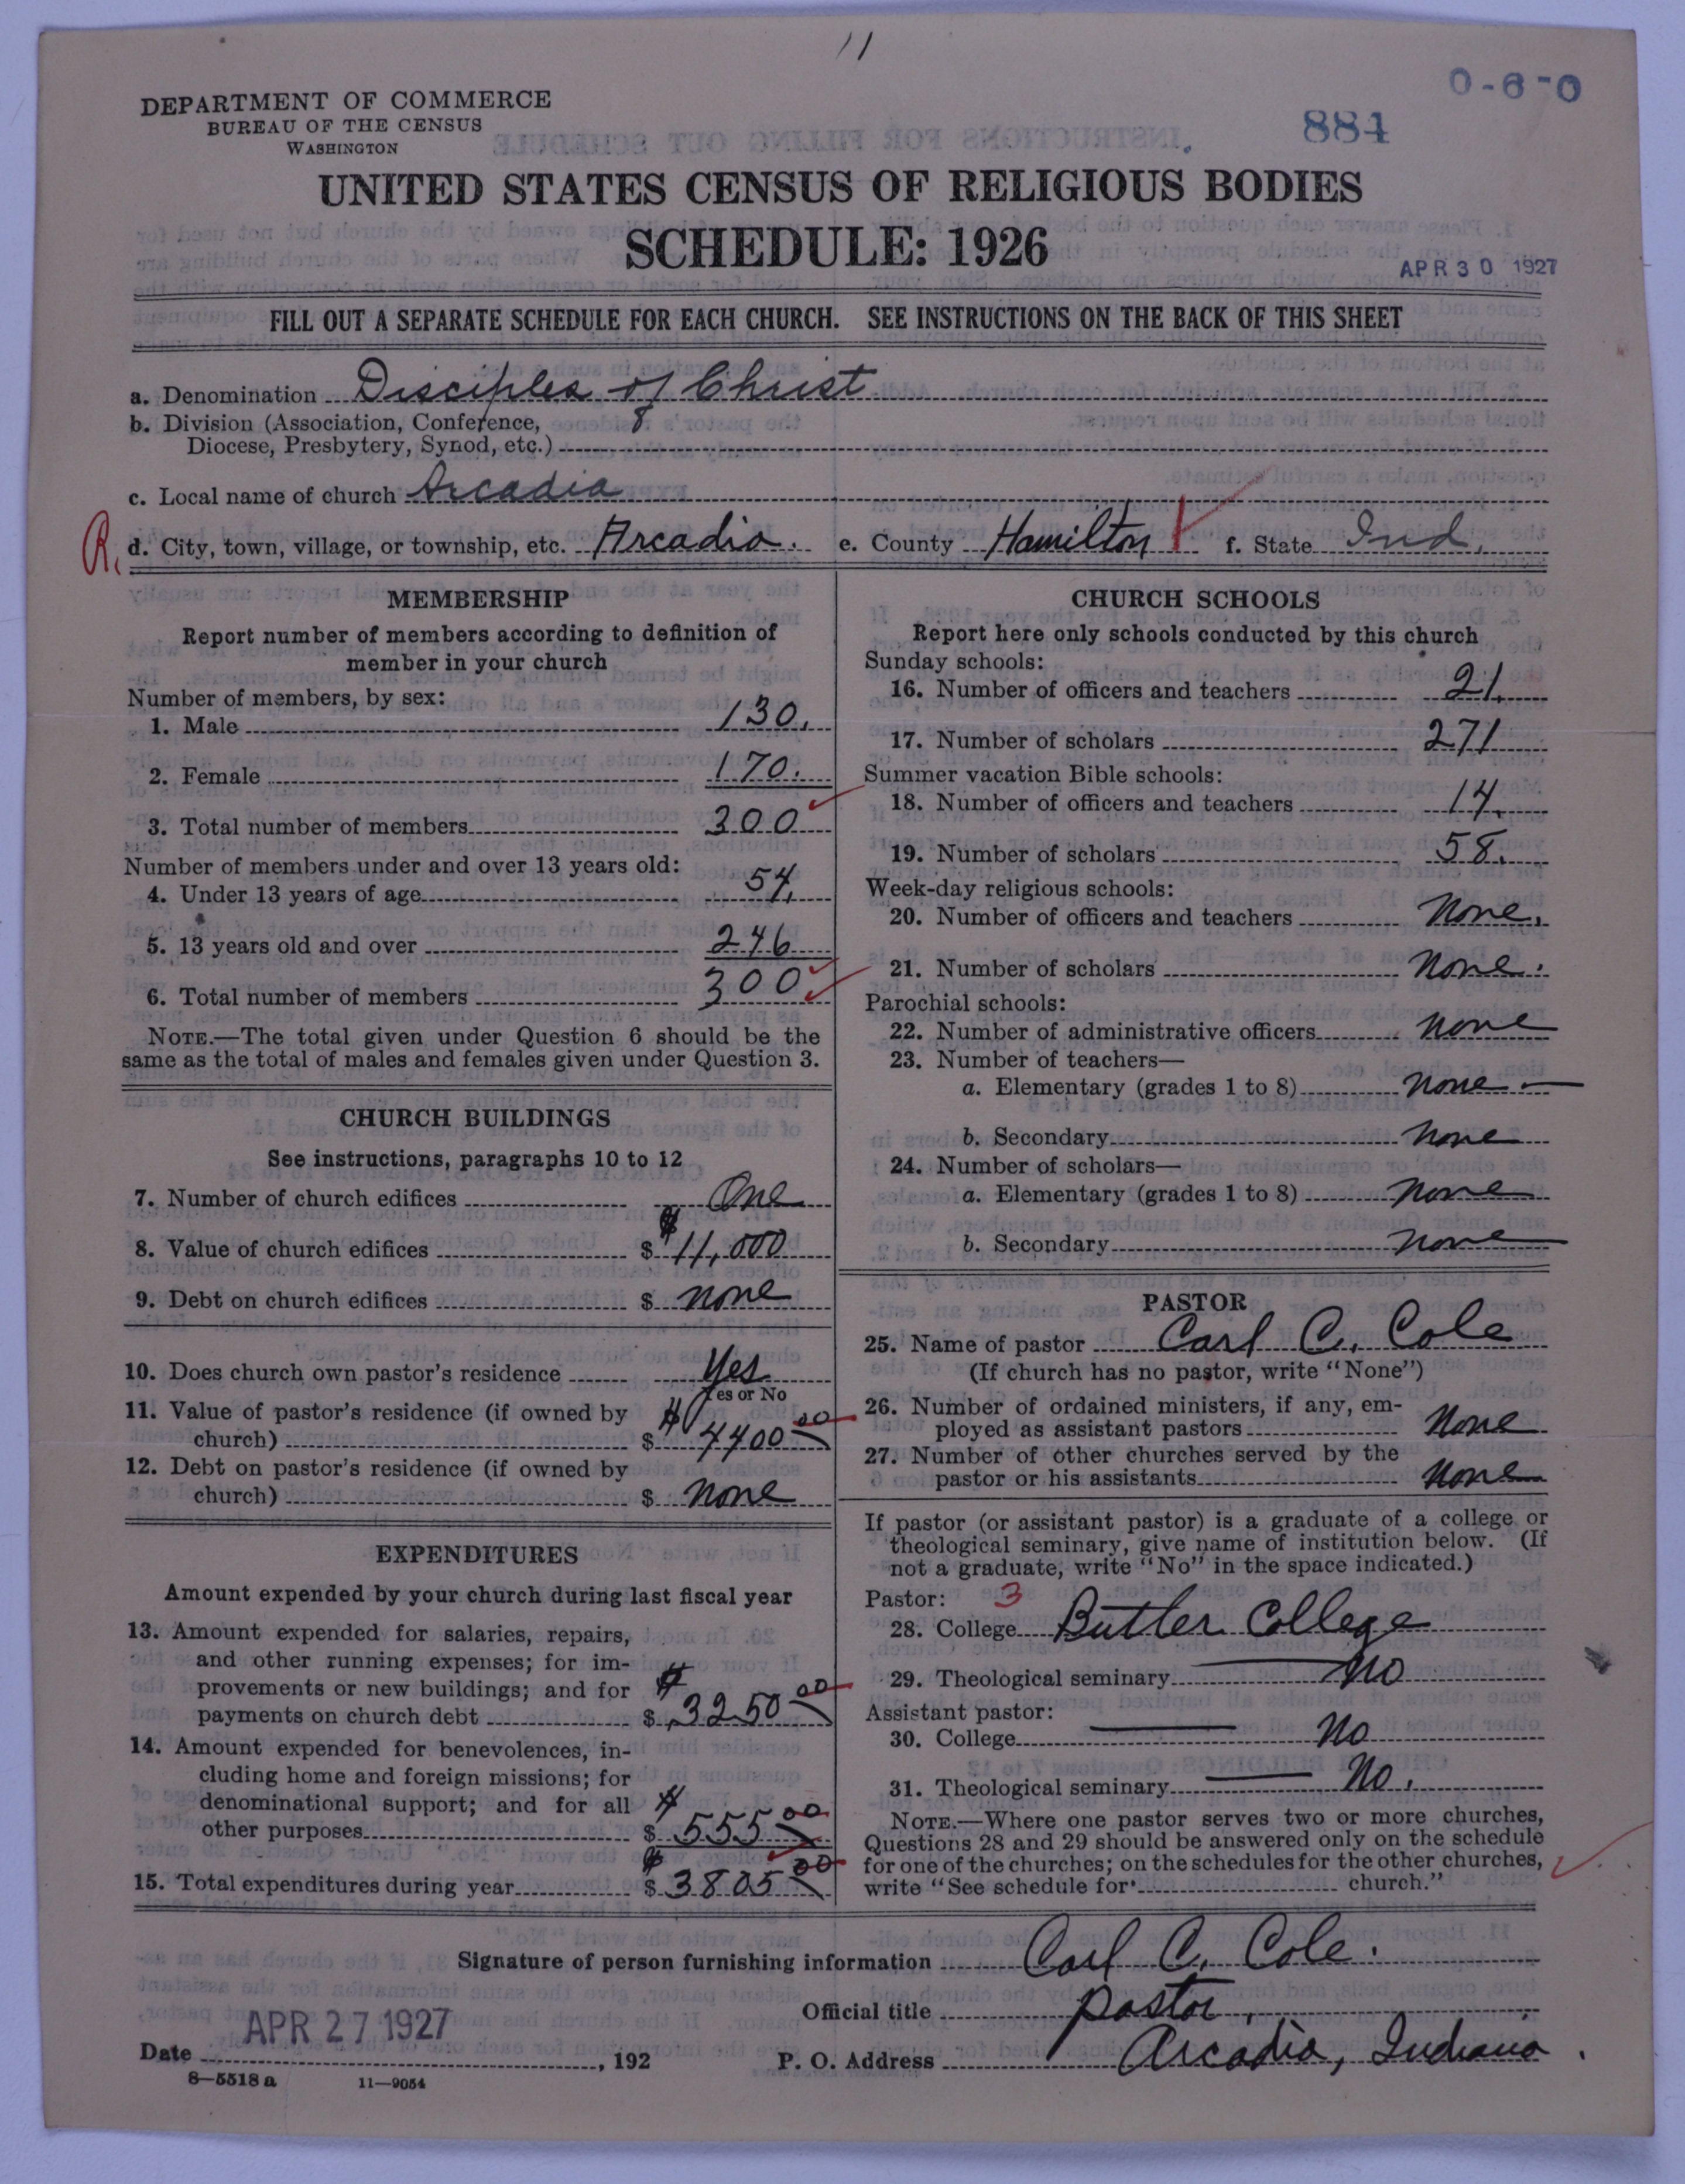 11
0-6-0
DEPARTMENT OF COMMERCE
BUREAU OF THE CENSUS
WASHINGTON
884
UNITED STATES CENSUS OF RELIGIOUS BODIES
SCHEDULE: 1926
APR 30 1927
FILL OUT A SEPARATE SCHEDULE FOR EACH CHURCH. SEE INSTRUCTIONS ON THE BACK OF THIS SHEET
a. Denomination Disciples of Christ
b. Division (Association, Conference, 8
Diocese, Presbytery, Synod, etc.)
c. Local name of church Arcadia
R. d. City, town, village, or township, etc. Arcadia. e. County Hamilton f. State Ind.
MEMBERSHIP
Report number of members according to definition of
member in your church
Number of members, by sex:
1. Male 130.
2. Female 170.
3. Total number of members 300
Number of members under and over 13 years old:
4. Under 13 years of age 54.
5. 13 years old and over 246
6. Total number of members 300
NOTE.—The total given under Question 6 should be the
same as the total of males and females given under Question 3.
CHURCH BUILDINGS
See instructions, paragraphs 10 to 12
7. Number of church edifices One
8. Value of church edifices $ $11,000
9. Debt on church edifices $ none
10. Does church own pastor's residence Yes
Yes or No
11. Value of pastor's residence (if owned by
church) $ $4400 00
12. Debt on pastor's residence (if owned by
church) $ none
EXPENDITURES
Amount expended by your church during last fiscal year
13. Amount expended for salaries, repairs,
and other running expenses; for im-
provements or new buildings; and for
payments on church debt $ $3250 00
14. Amount expended for benevolences, in-
cluding home and foreign missions; for
denominational support; and for all
other purposes $ $555 00
15. Total expenditures during year $ $3805 00
CHURCH SCHOOLS
Report here only schools conducted by this church
Sunday schools:
16. Number of officers and teachers 21.
17. Number of scholars 271
Summer vacation Bible schools:
18. Number of officers and teachers 14.
19. Number of scholars 58.
Week-day religious schools:
20. Number of officers and teachers None.
21. Number of scholars None.
Parochial schools:
22. Number of administrative officers none
23. Number of teachers—
a. Elementary (grades 1 to 8) none —
b. Secondary none
24. Number of scholars—
a. Elementary (grades 1 to 8) none
b. Secondary none
PASTOR
25. Name of pastor Carl C. Cole
(If church has no pastor, write "None")
26. Number of ordained ministers, if any, em-
ployed as assistant pastors None
27. Number of other churches served by the
pastor or his assistants None
If pastor (or assistant pastor) is a graduate of a college or
theological seminary, give name of institution below. (If
not a graduate, write "No" in the space indicated.)
Pastor: 3
28. College Butler College
29. Theological seminary — No
Assistant pastor:
30. College — No
31. Theological seminary — No.
NOTE.—Where one pastor serves two or more churches,
Questions 28 and 29 should be answered only on the schedule
for one of the churches; on the schedules for the other churches,
write "See schedule for church."
Signature of person furnishing information Carl C. Cole.
Official title Pastor.
Date APR 27 1927, 192 P. O. Address Arcadia, Indiana.
8—5518 a 11—9054